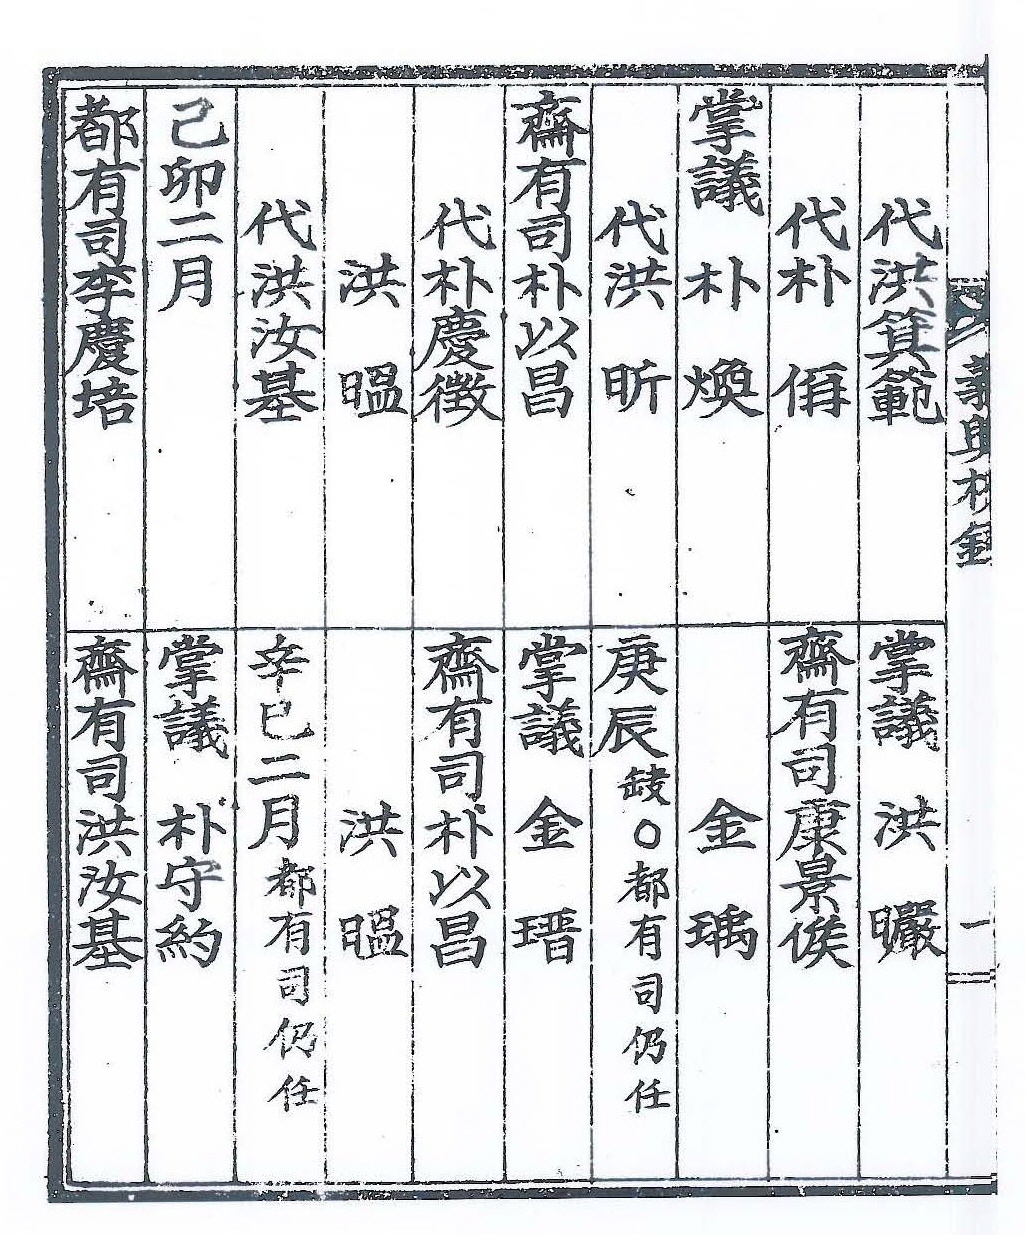 義興校錄
一
代洪箕範
代朴
掌議 朴 煥
代洪 昕
齋有司朴以昌
代朴慶徵
洪 㬈
代洪汝基
己卯二月
都有司李慶培
掌議 洪 曮
齋有司康景俟
金 瑀
庚辰 缺○都有司仍任
掌議 金 瑨
齋有司朴以昌
洪 㬈
辛巳二月 都有司仍任
掌議 朴守約
齋有司洪汝基